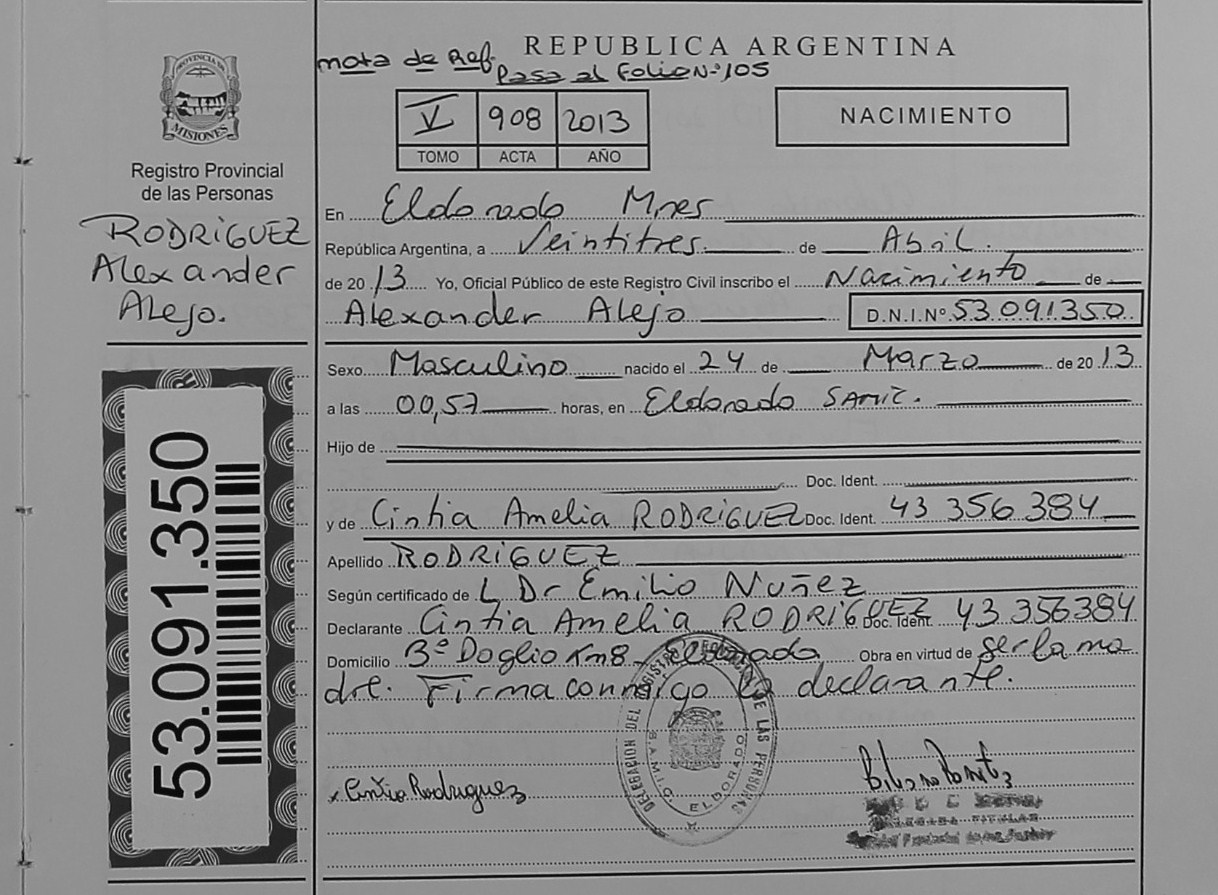 REPUBLICA ARGENTINA
nota de Ref.
Pasa al Folio Nº 105
PROVINCIA DE
MISIONES
Registro Provincial
de las Personas
RODRIGUEZ
Alexander
Alejo.
V 908 2013
TOMO ACTA AÑO
NACIMIENTO
En Eldorado Mnes
República Argentina, a Veintitres de Abril.
de 2013 Yo, Oficial Público de este Registro Civil inscribo el Nacimiento de
Alexander Alejo D.N.I.Nº 53.091.350
Sexo Masculino nacido el 24 de Marzo de 2013
a las 00,57 horas, en Eldorado SAMIC.
Hijo de
Doc. Ident.
y de Cintia Amelia RODRIGUEZ Doc. Ident. 43 356 384
Apellido RODRIGUEZ
Según certificado de L Dr Emilio Nuñez
Declarante Cintia Amelia RODRIGUEZ Doc. Ident. 43 356384
Domicilio 3º Doglio Km8 Eldorado Obra en virtud de ser la ma
dre. Firma conmigo la declarante.
53.091.350
x Cintia Rodriguez
DELEGACION DEL REGISTRO PROVINCIAL DE LAS PERSONAS
S.A.M.I.C. ELDORADO
DELEGADA TITULAR